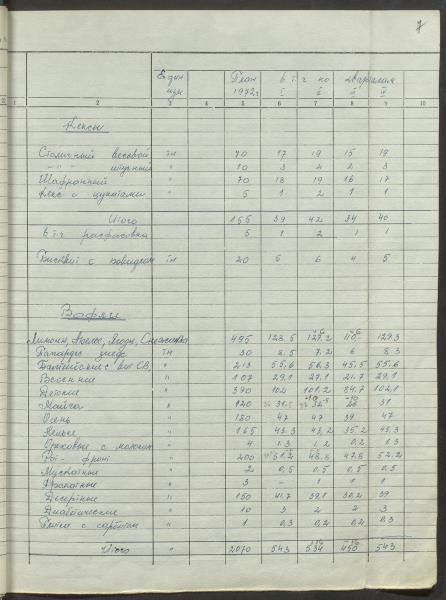 7
Един План в т.ч. по кварталам
изм 1972г. I II III IV
1 2 3 4 5 6 7 8 9 10
Кексы
Столичный весовой тн 70 17 19 15 19
-"- штучный " 10 3 2 2 3
Шафранный " 70 18 19 16 17
Кекс с цукатами " 5 1 2 1 1
Итого 155 39 42 34 40
в т.ч. расфасовка 5 1 2 1 1
Бисквит с повидлом тн 20 5 6 4 5
Вафли
Лимонн, Ягоды, Снежинка 495 128.5 129.3
тн 30 8.5 7.2 6 8.3
Балтийские с вит СВ, " 213 55.6 56.3 45.5 55.6
Весенние " 107 29.1 27.1 21.7 29.1
Детские " 390 102 101.2 84.7 102.1
Майга " 120 31
Олень " 180 47 47 39 47
Нельке " 165 43.3 43.2 35.2 43.3
Ореховые с молоком " 4 1.3 1.2 0.2 1.3
Рот-фронт " 200 51.2 48.8 47.8 52.2
Мускатные " 2 0,5 0,5 0,5 0,5
" 3 - 1 1 1
Десертные " 150 41.7 39.1 30.2 39
Диабетические " 10 3 2 2 3
с сорбитом " 1 0,3 0,2 0,2 0.3
Итого " 2070 543 534 450 543